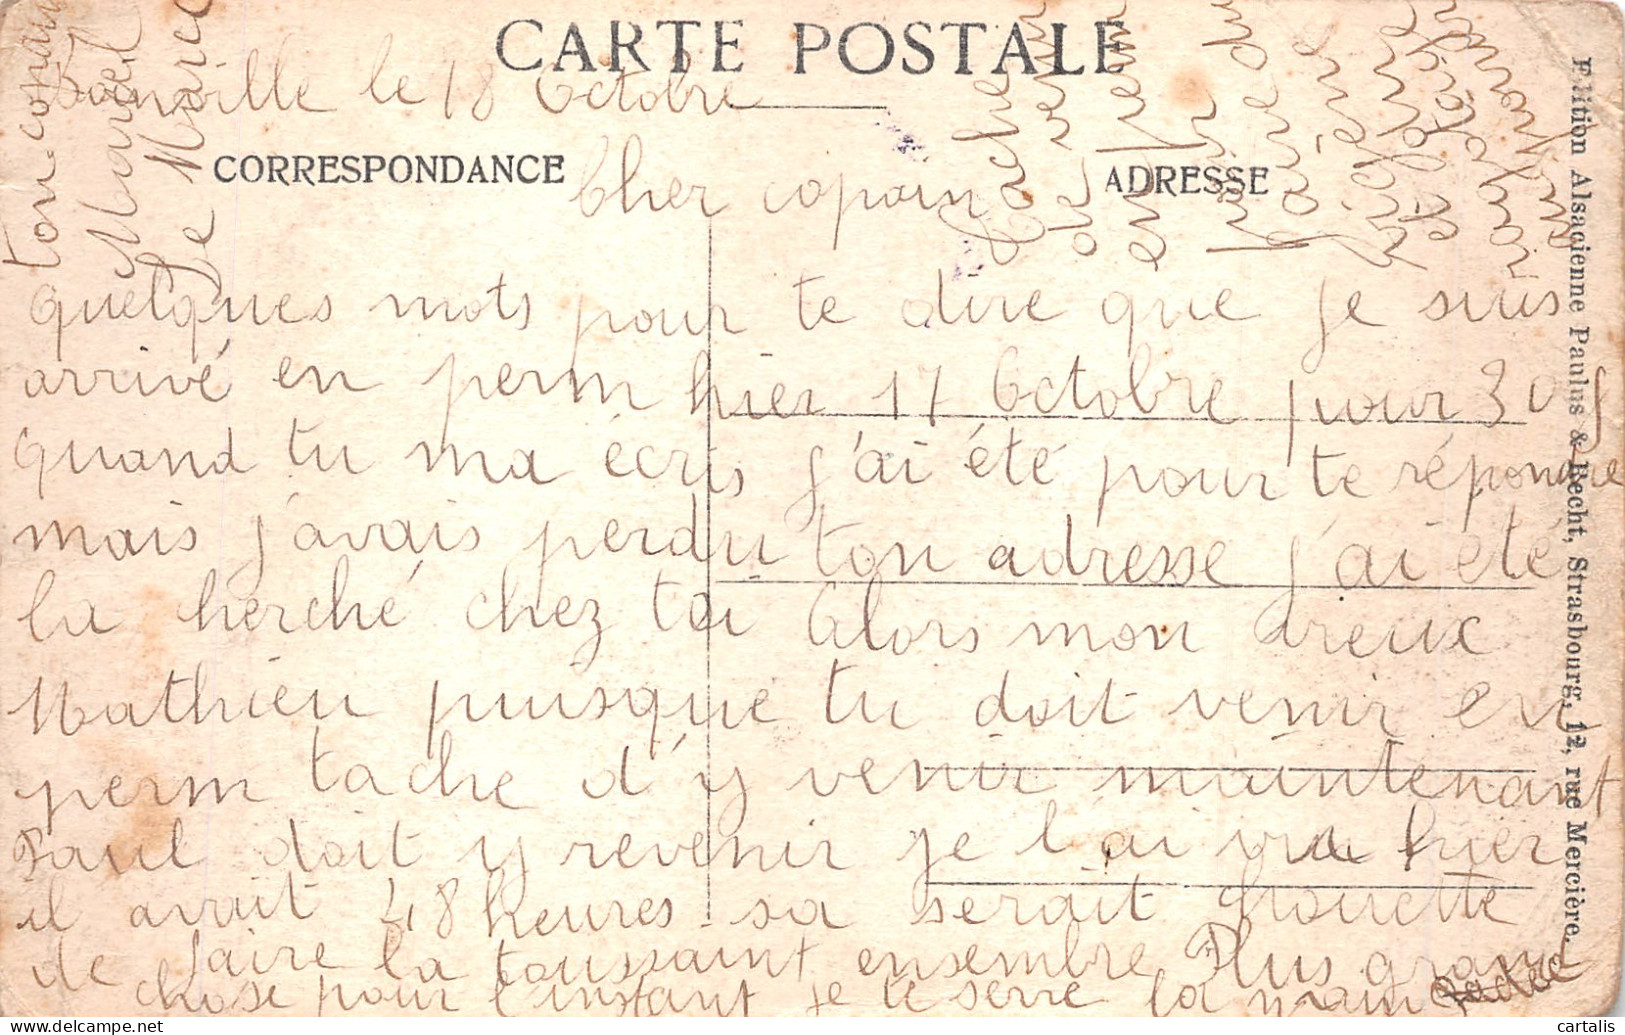 CARTE POSTALE
le 18 Octobre
CORRESPONDANCE
ADRESSE
Cher copain
quelques mots pour te dire que je suis
arrivé en perm hier 17 Octobre pour 30 j
quand tu ma écris j'ai été pour te répondre
mais j'avais perdu ton adresse j'ai été
la cherché chez toi Alors mon vieux
Mathieu puisque tu doit venir en
perm tache d'y venir maintenant
Paul doit y revenir je l'ai vu hier
il avait 48 heures sa serait
de faire la toussaint ensemble Plus grand
chose pour l'instant je te serre la main
ton copain
Marcel
Le
tache
de venir
en perm
Edition Alsacienne Paulus & Hecht, Strasbourg, 12, rue Mercière.
cartalis